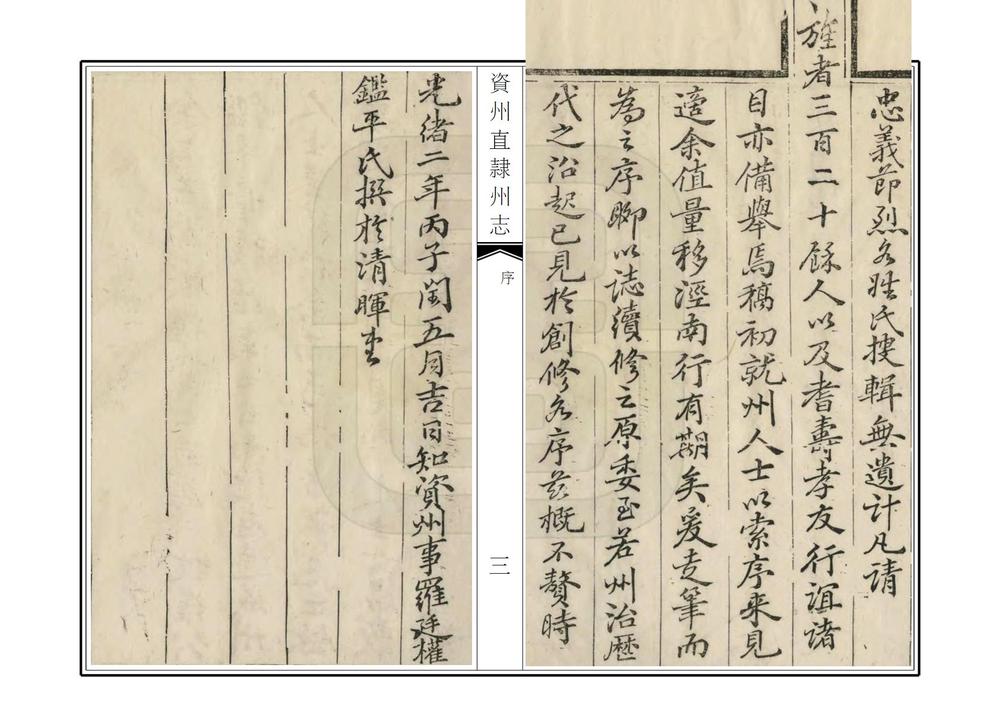 忠義節烈各姓氏搜輯無遺計凡請
旌者三百二十餘人以及耆壽孝友行誼諸
目亦備舉焉稿初就州人士以索序來見
適余值量移涇南行有期矣爰走筆而
為之序聊以誌續修之原委至若州治歷
代之沿起已見於創修各序茲概不贅時
資州直隸州志
序
三
光緒二年丙子閏五月吉日知資州事羅廷權
鑑平氏撰於清暉堂